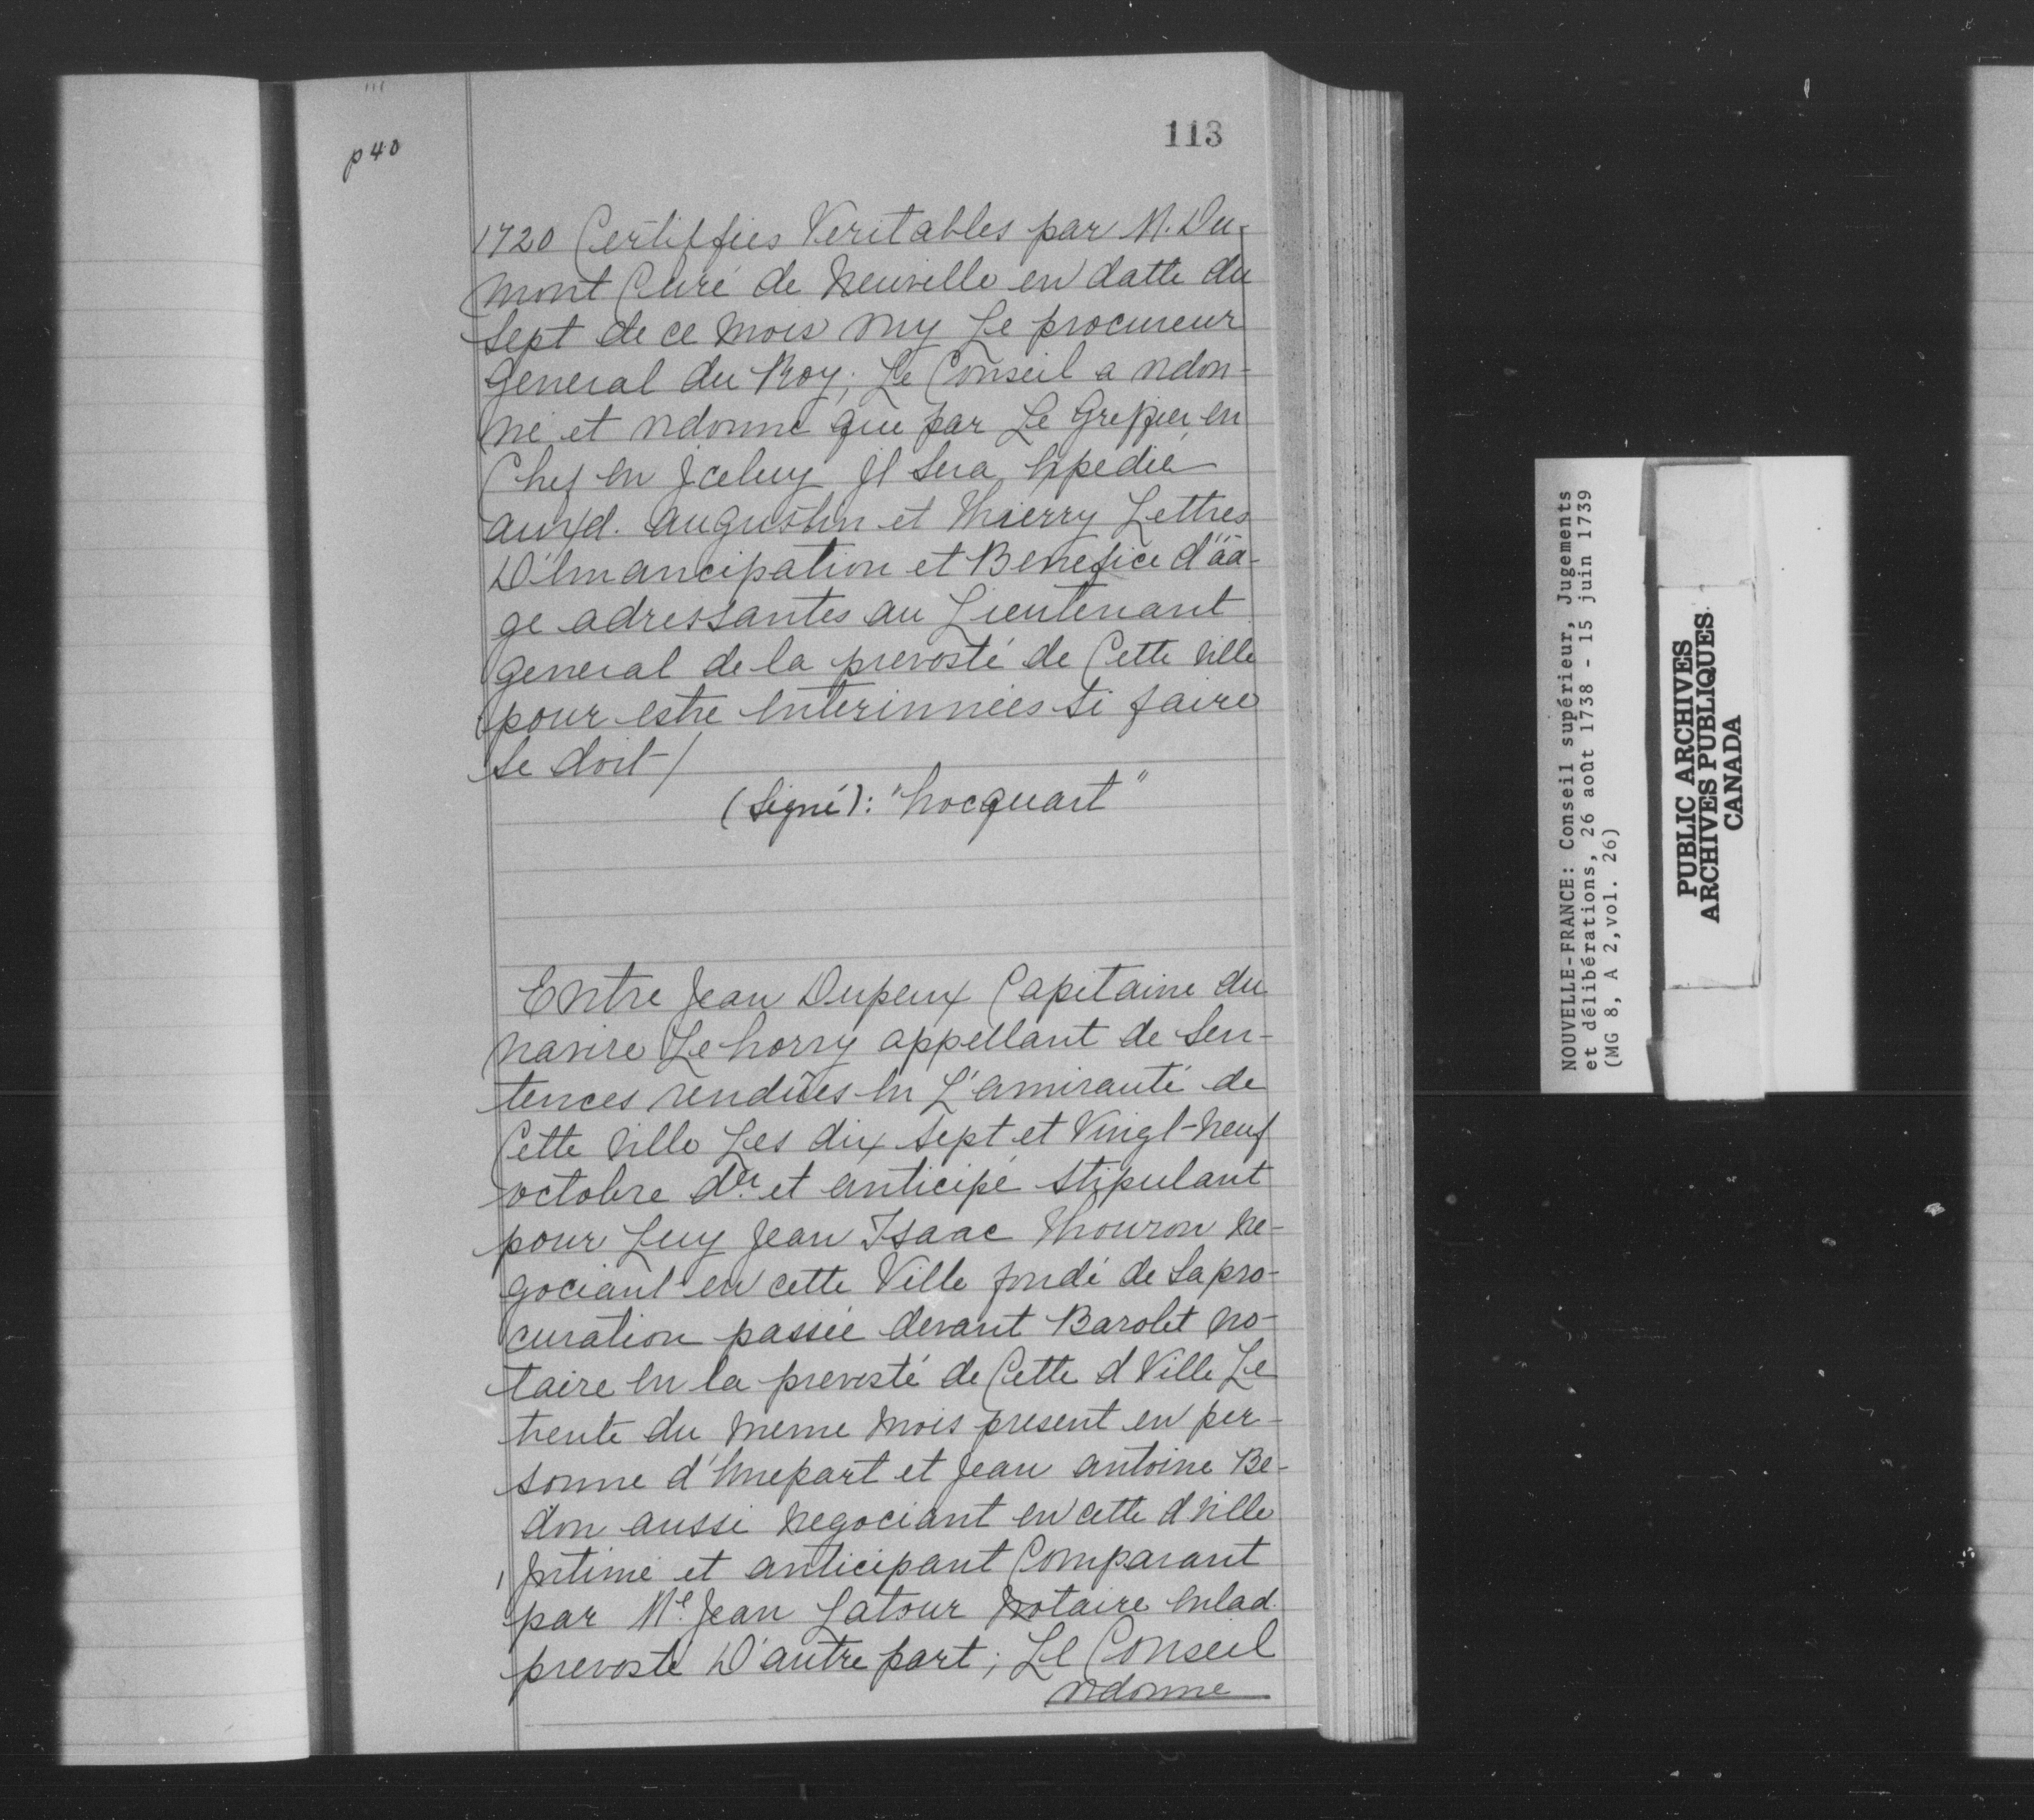 113
p 40
1720 Certiffiés Veritables par M. Du-
mont Curé de Neuville en datte du
sept de ce mois ouy Le procureur
general du Roy; Le Conseil a ordon-
né et ordonne que par Le Greffier en
Chef en Jceluy Jl sera Expedié
auxd. augustin et Thierry Lettres
D'Emancipation et Benefice d'aa-
ge adressantes au Lieutenant
general de la prevosté de Cette Ville
pour estre Enterinnées si faire
se doit /
(Signé): "hocquart"
Entre Jean Dupeux Capitaine du
navire Le horry appellant de Sen-
tences rendües En L'amirauté de
Cette Ville Les dix sept et Vingt-neuf
octobre der et anticipé stipulant
pour Luy Jean Isaac Thouron ne-
gociant en cette Ville fondé de sa pro-
curation passée devant Barolet no-
taire En la prevosté de Cette d Ville Le
trente du meme mois present en per-
sonne d'Unepart et Jean antoine Be-
don aussi negociant en cette d Ville
Jntimé et anticipant Comparant
par Me. Jean Latour Notaire Enlad.
prevosté D'autre part; Le Conseil
ordonne
NOUVELLE-FRANCE: Conseil supérieur, Jugements
et délibérations, 26 août 1738 - 15 juin 1739
(MG 8, A 2,vol. 26)
PUBLIC ARCHIVES
ARCHIVES PUBLIQUES
CANADA